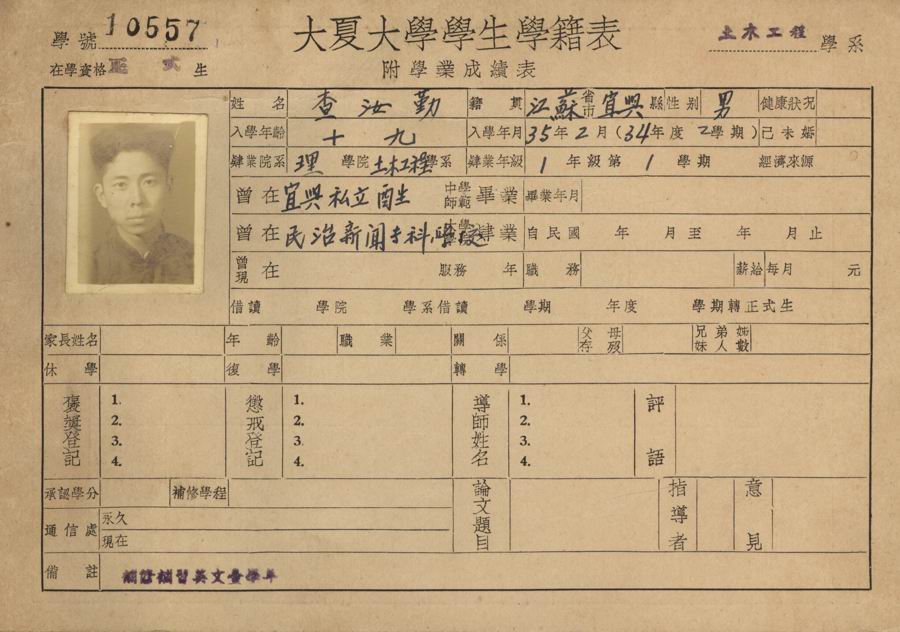 大夏大學學生學籍表
附學業成績表
學號 10557
土木工程 學系
在學資格 正式 生
姓名 查汝勤 籍貫 江蘇 省市 宜興 縣 性別 男 健康狀況
入學年齡 十九 入學年月 35年2月(34年度2學期) 已未婚
肄業院系 理 學院 土木工程 學系 肄業年級 1 年級第 1 學期 經濟來源
曾在 宜興私立 中學師範 畢業 畢業年月
曾在 民治新聞专科學校 大學 肄業 自民國 年 月至 年 月止
曾現在 服務 年 職務 薪給每月 元
借讀 學院 學系借讀 學期 年度 學期轉正式生
家長姓名 年齡 職業 關係 父母存歿 兄弟姊妹人數
休學 復學 轉學
褒獎登記 1. 2. 3. 4. 懲戒登記 1. 2. 3. 4. 導師姓名 1. 2. 3. 4. 評語
承認學分 補修學程 論文題目 指導者 意見
通信處 永久
現在
備註 補習英文壹學年